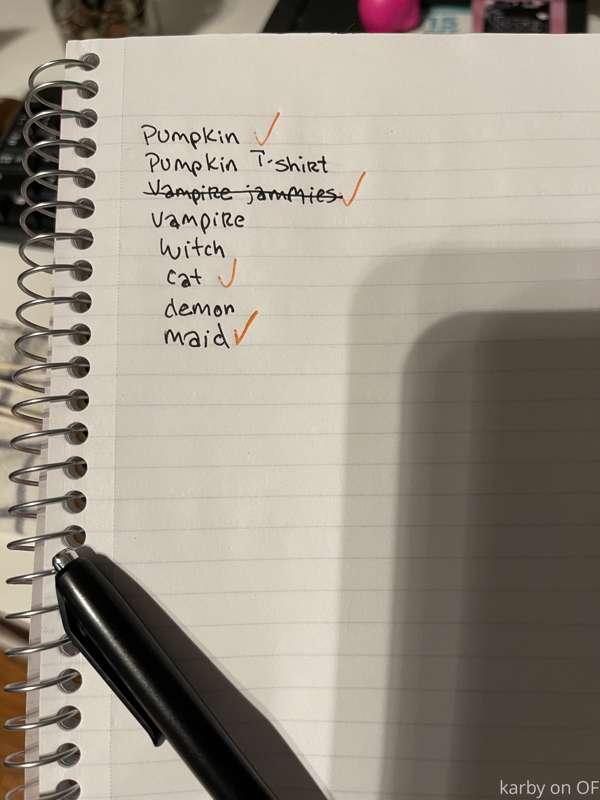 Pumpkin ✓
Pumpkin T-shirt
Vampire jammies ✓
vampire
witch
cat ✓
demon
maid ✓
karby on OF